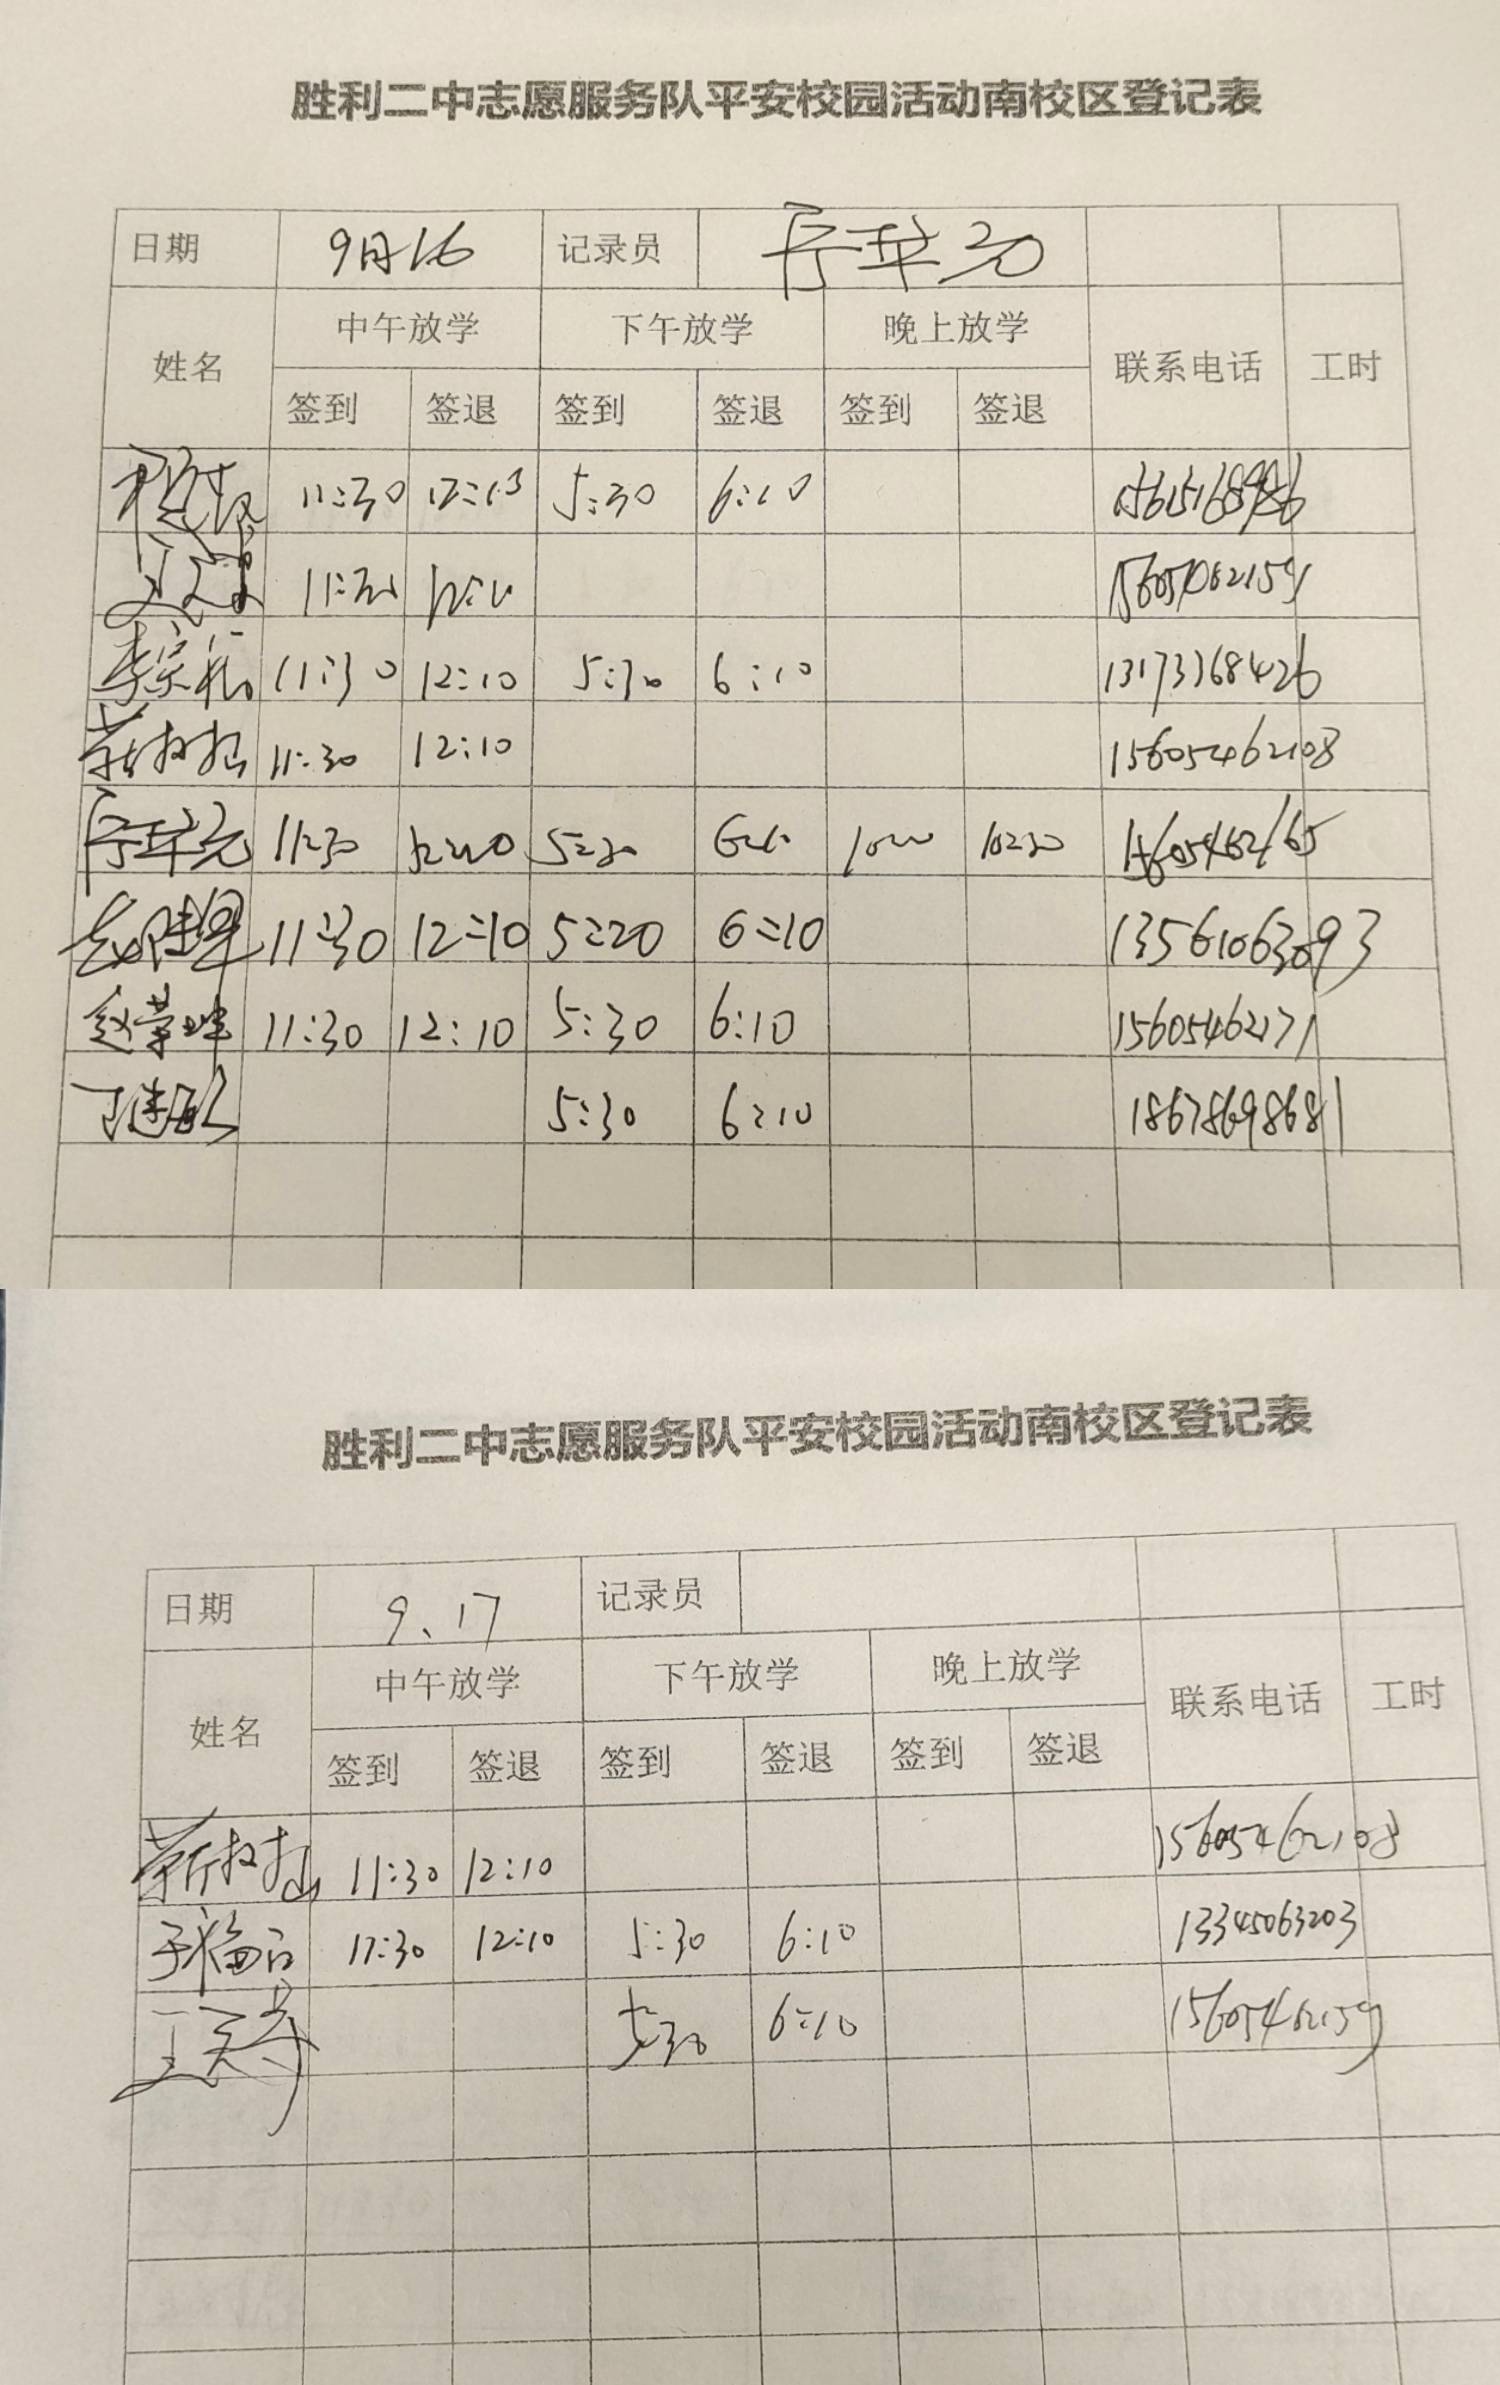 胜利二中志愿服务队平安校园活动南校区登记表
日期 9月16 记录员
中午放学 下午放学 晚上放学
姓名 联系电话 工时
签到 签退 签到 签退 签到 签退
11:30 5:30 6:10
11:30
李宗 11:30 12:10 5:30 6:10 13173368426
11:30 12:10 15605462108
11:30 5:30 10:30 15605462165
11:30 12:10 5:20 6:10 13561063093
赵荣 11:30 12:10 5:30 6:10 15605462171
丁 5:30 6:10 18678698681
胜利二中志愿服务队平安校园活动南校区登记表
日期 9.17 记录员
中午放学 下午放学 晚上放学
姓名 联系电话 工时
签到 签退 签到 签退 签到 签退
靳树 11:30 12:10 15605462108
于福 11:30 12:10 5:30 6:10 13345063203
王 5:30 6:10 15605462159